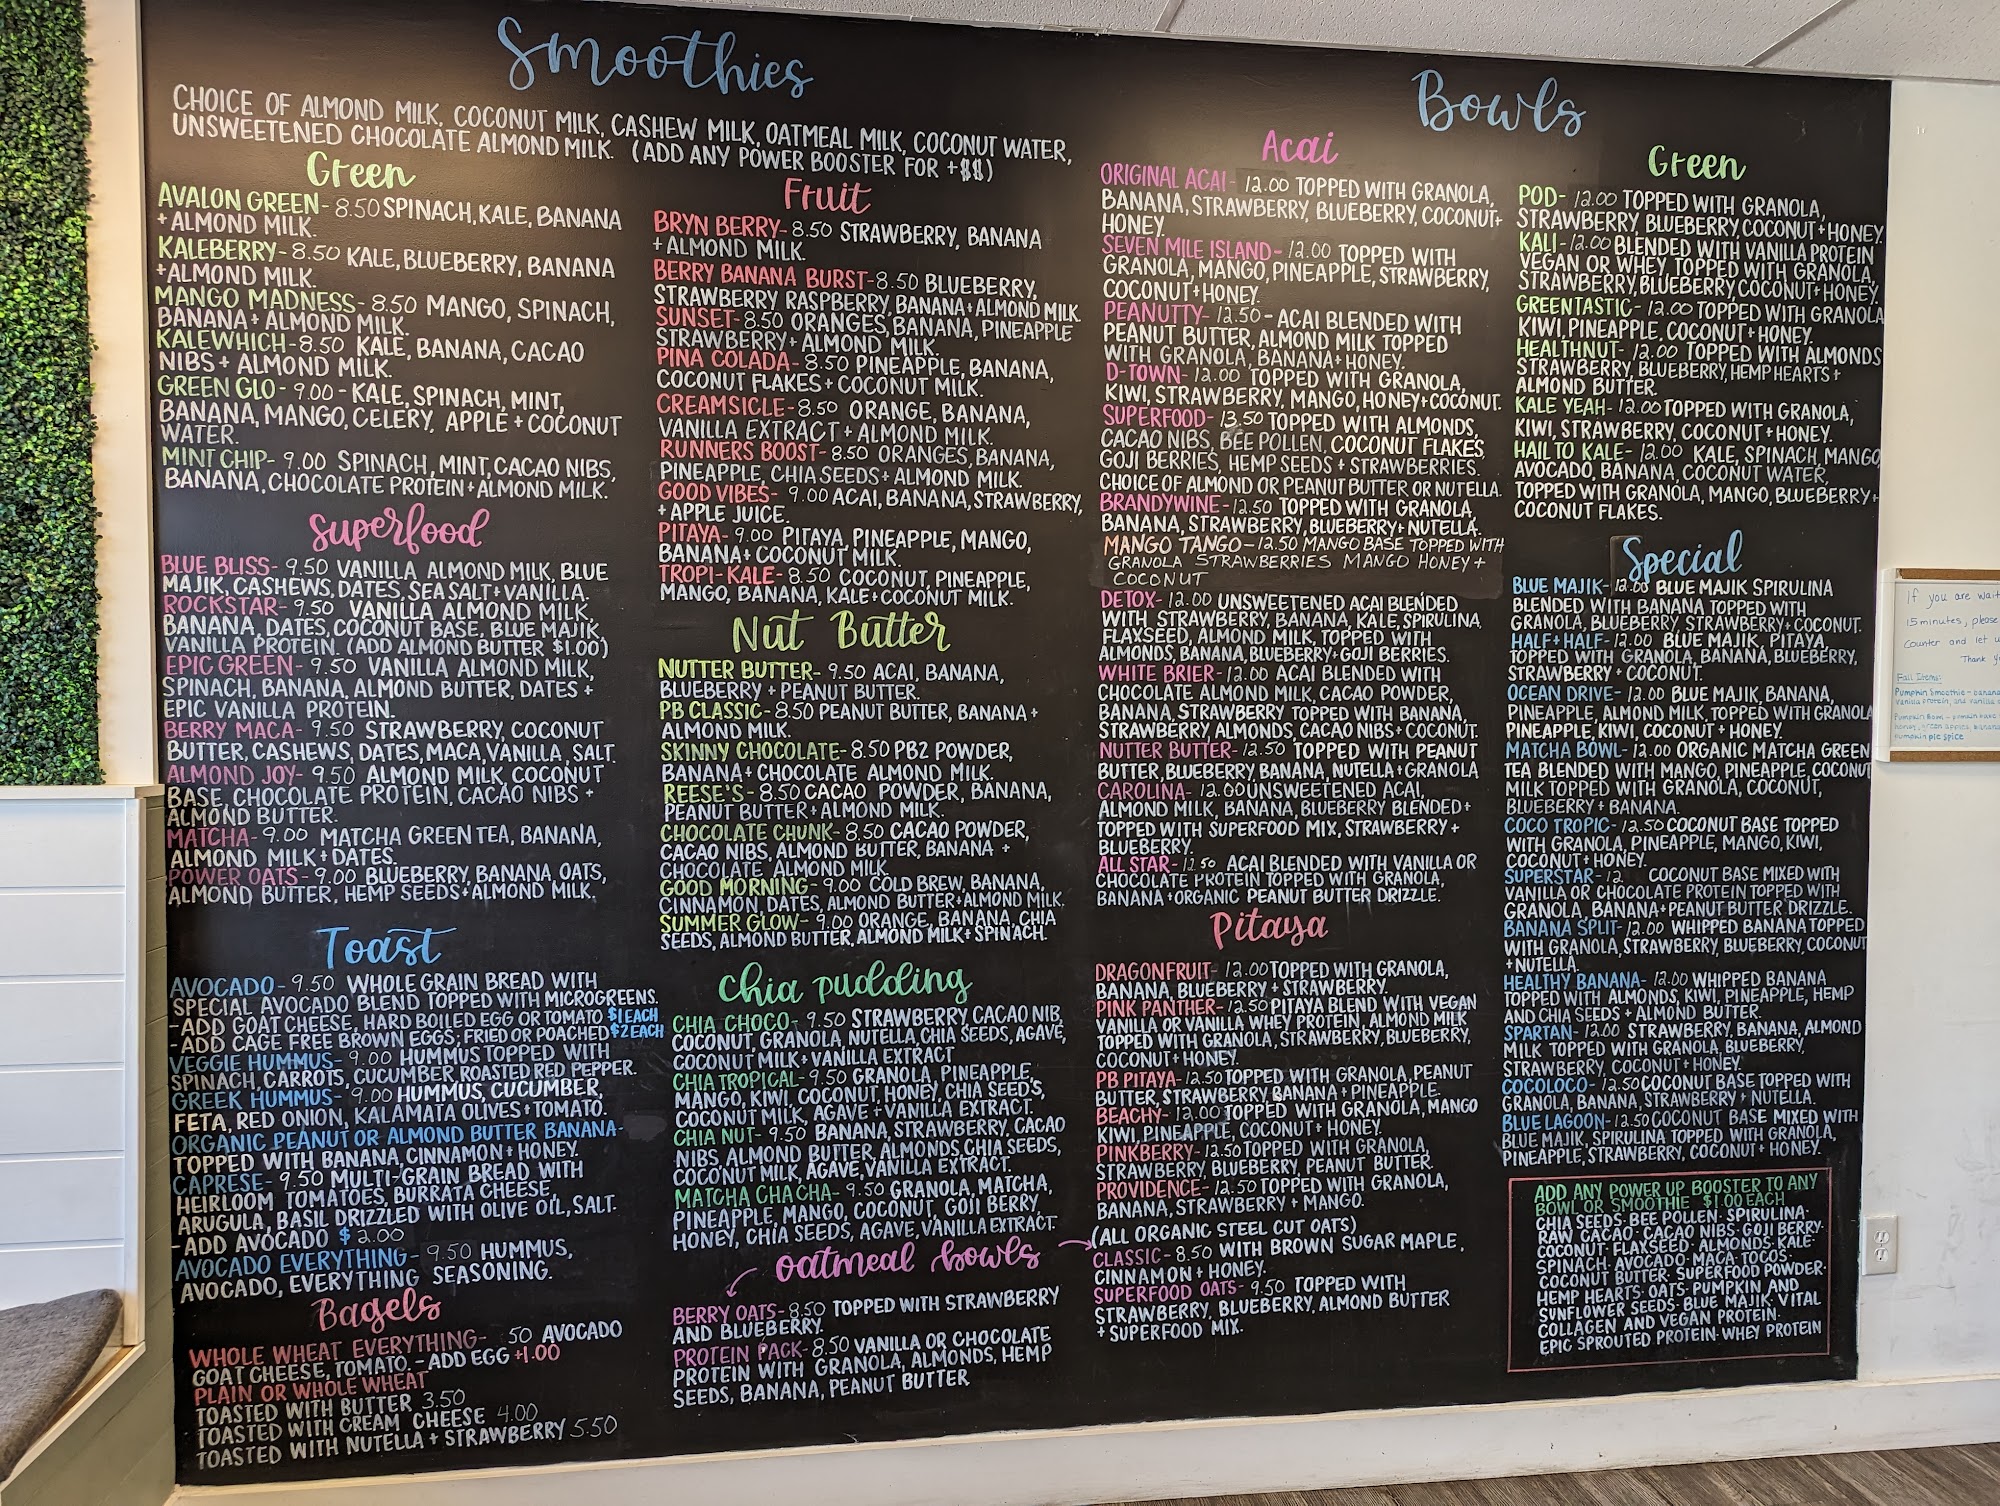 Smoothies
CHOICE OF ALMOND MILK, COCONUT MILK, CASHEW MILK, OATMEAL MILK, COCONUT WATER,
UNSWEETENED CHOCOLATE ALMOND MILK. (ADD ANY POWER BOOSTER FOR +$$)
Green
AVALON GREEN- 8.50 SPINACH, KALE, BANANA
+ ALMOND MILK.
KALEBERRY- 8.50 KALE, BLUEBERRY, BANANA
+ALMOND MILK.
MANGO MADNESS- 8.50 MANGO, SPINACH,
BANANA + ALMOND MILK.
KALEWHICH- 8.50 KALE, BANANA, CACAO
NIBS + ALMOND MILK.
GREEN GLO- 9.00 - KALE, SPINACH, MINT,
BANANA, MANGO, CELERY, APPLE + COCONUT
WATER.
MINT CHIP- 9.00 SPINACH, MINT, CACAO NIBS,
BANANA, CHOCOLATE PROTEIN + ALMOND MILK.
Superfood
BLUE BLISS- 9.50 VANILLA ALMOND MILK, BLUE
MAJIK, CASHEWS, DATES, SEA SALT + VANILLA.
ROCKSTAR- 9.50 VANILLA ALMOND MILK,
BANANA, DATES, COCONUT BASE, BLUE MAJIK,
VANILLA PROTEIN. (ADD ALMOND BUTTER $1.00)
EPIC GREEN- 9.50 VANILLA ALMOND MILK,
SPINACH, BANANA, ALMOND BUTTER, DATES +
EPIC VANILLA PROTEIN.
BERRY MACA- 9.50 STRAWBERRY, COCONUT
BUTTER, CASHEWS, DATES, MACA, VANILLA, SALT.
ALMOND JOY- 9.50 ALMOND MILK, COCONUT
BASE, CHOCOLATE PROTEIN, CACAO NIBS +
ALMOND BUTTER.
MATCHA- 9.00 MATCHA GREEN TEA, BANANA,
ALMOND MILK + DATES.
POWER OATS- 9.00 BLUEBERRY, BANANA OATS,
ALMOND BUTTER, HEMP SEEDS + ALMOND MILK.
Toast
AVOCADO- 9.50 WHOLE GRAIN BREAD WITH
SPECIAL AVOCADO BLEND TOPPED WITH MICROGREENS.
-ADD GOAT CHEESE, HARD BOILED EGG OR TOMATO $1 EACH
-ADD CAGE FREE BROWN EGGS, FRIED OR POACHED $2 EACH
VEGGIE HUMMUS- 9.00 HUMMUS TOPPED WITH
SPINACH, CARROTS, CUCUMBER ROASTED RED PEPPER.
GREEK HUMMUS- 9.00 HUMMUS, CUCUMBER,
FETA, RED ONION, KALAMATA OLIVES + TOMATO.
ORGANIC PEANUT OR ALMOND BUTTER BANANA-
TOPPED WITH BANANA, CINNAMON + HONEY.
CAPRESE- 9.50 MULTI-GRAIN BREAD WITH
HEIRLOOM TOMATOES, BURRATA CHEESE,
ARUGULA, BASIL DRIZZLED WITH OLIVE OIL, SALT.
-ADD AVOCADO $ 2.00
AVOCADO EVERYTHING- 9.50 HUMMUS,
AVOCADO, EVERYTHING SEASONING.
Bagels
WHOLE WHEAT EVERYTHING- .50 AVOCADO
GOAT CHEESE, TOMATO. - ADD EGG +1.00
PLAIN OR WHOLE WHEAT
TOASTED WITH BUTTER 3.50
TOASTED WITH CREAM CHEESE 4.00
TOASTED WITH NUTELLA + STRAWBERRY 5.50
Fruit
BRYN BERRY- 8.50 STRAWBERRY, BANANA
+ ALMOND MILK.
BERRY BANANA BURST- 8.50 BLUEBERRY,
STRAWBERRY RASPBERRY, BANANA + ALMOND MILK.
SUNSET- 8.50 ORANGES, BANANA, PINEAPPLE
STRAWBERRY + ALMOND MILK.
PINA COLADA- 8.50 PINEAPPLE, BANANA,
COCONUT FLAKES + COCONUT MILK.
CREAMSICLE- 8.50 ORANGE, BANANA,
VANILLA EXTRACT + ALMOND MILK.
RUNNERS BOOST- 8.50 ORANGES, BANANA,
PINEAPPLE, CHIA SEEDS + ALMOND MILK.
GOOD VIBES- 9.00 ACAI, BANANA, STRAWBERRY,
+ APPLE JUICE.
PITAYA- 9.00 PITAYA, PINEAPPLE, MANGO,
BANANA + COCONUT MILK.
TROPI-KALE- 8.50 COCONUT, PINEAPPLE,
MANGO, BANANA, KALE + COCONUT MILK.
Nut Butter
NUTTER BUTTER- 9.50 ACAI, BANANA,
BLUEBERRY + PEANUT BUTTER.
PB CLASSIC- 8.50 PEANUT BUTTER, BANANA +
ALMOND MILK.
SKINNY CHOCOLATE- 8.50 PB2 POWDER,
BANANA + CHOCOLATE ALMOND MILK.
REESE'S- 8.50 CACAO POWDER, BANANA,
PEANUT BUTTER + ALMOND MILK.
CHOCOLATE CHUNK- 8.50 CACAO POWDER,
CACAO NIBS, ALMOND BUTTER, BANANA +
CHOCOLATE ALMOND MILK.
GOOD MORNING- 9.00 COLD BREW, BANANA,
CINNAMON, DATES, ALMOND BUTTER + ALMOND MILK.
SUMMER GLOW- 9.00 ORANGE, BANANA, CHIA
SEEDS, ALMOND BUTTER, ALMOND MILK + SPINACH.
Chia pudding
CHIA CHOCO- 9.50 STRAWBERRY CACAO NIB,
COCONUT, GRANOLA, NUTELLA, CHIA SEEDS, AGAVE,
COCONUT MILK + VANILLA EXTRACT
CHIA TROPICAL- 9.50 GRANOLA, PINEAPPLE,
MANGO, KIWI, COCONUT, HONEY, CHIA SEED'S,
COCONUT MILK, AGAVE + VANILLA EXTRACT.
CHIA NUT- 9.50 BANANA, STRAWBERRY, CACAO
NIBS, ALMOND BUTTER, ALMONDS, CHIA SEEDS,
COCONUT MILK, AGAVE, VANILLA EXTRACT.
MATCHA CHA CHA- 9.50 GRANOLA, MATCHA,
PINEAPPLE, MANGO, COCONUT, GOJI BERRY,
HONEY, CHIA SEEDS, AGAVE, VANILLA EXTRACT.
oatmeal bowls
BERRY OATS- 8.50 TOPPED WITH STRAWBERRY
AND BLUEBERRY.
PROTEIN PACK- 8.50 VANILLA OR CHOCOLATE
PROTEIN WITH GRANOLA, ALMONDS, HEMP
SEEDS, BANANA, PEANUT BUTTER
(ALL ORGANIC STEEL CUT OATS)
CLASSIC- 8.50 WITH BROWN SUGAR MAPLE,
CINNAMON + HONEY.
SUPERFOOD OATS- 9.50 TOPPED WITH
STRAWBERRY, BLUEBERRY, ALMOND BUTTER
+ SUPERFOOD MIX.
Bowls
Acai
ORIGINAL ACAI- 12.00 TOPPED WITH GRANOLA,
BANANA, STRAWBERRY, BLUEBERRY, COCONUT +
HONEY.
SEVEN MILE ISLAND- 12.00 TOPPED WITH
GRANOLA, MANGO, PINEAPPLE, STRAWBERRY,
COCONUT + HONEY.
PEANUTTY- 12.50 - ACAI BLENDED WITH
PEANUT BUTTER, ALMOND MILK TOPPED
WITH GRANOLA, BANANA + HONEY.
D-TOWN- 12.00 TOPPED WITH GRANOLA,
KIWI, STRAWBERRY, MANGO, HONEY + COCONUT.
SUPERFOOD- 13.50 TOPPED WITH ALMONDS,
CACAO NIBS, BEE POLLEN, COCONUT FLAKES,
GOJI BERRIES, HEMP SEEDS + STRAWBERRIES.
CHOICE OF ALMOND OR PEANUT BUTTER OR NUTELLA.
BRANDYWINE- 12.50 TOPPED WITH GRANOLA,
BANANA, STRAWBERRY, BLUEBERRY + NUTELLA.
MANGO TANGO- 12.50 MANGO BASE TOPPED WITH
GRANOLA STRAWBERRIES MANGO HONEY +
COCONUT
DETOX- 12.00 UNSWEETENED ACAI BLENDED
WITH STRAWBERRY, BANANA, KALE, SPIRULINA,
FLAXSEED, ALMOND MILK, TOPPED WITH
ALMONDS, BANANA, BLUEBERRY + GOJI BERRIES.
WHITE BRIER- 12.00 ACAI BLENDED WITH
CHOCOLATE ALMOND MILK, CACAO POWDER,
BANANA, STRAWBERRY TOPPED WITH BANANA,
STRAWBERRY, ALMONDS, CACAO NIBS + COCONUT.
NUTTER BUTTER- 12.50 TOPPED WITH PEANUT
BUTTER, BLUEBERRY, BANANA, NUTELLA + GRANOLA
CAROLINA- 12.00 UNSWEETENED ACAI,
ALMOND MILK, BANANA, BLUEBERRY BLENDED +
TOPPED WITH SUPERFOOD MIX, STRAWBERRY +
BLUEBERRY.
ALL STAR- 12.50 ACAI BLENDED WITH VANILLA OR
CHOCOLATE PROTEIN TOPPED WITH GRANOLA,
BANANA + ORGANIC PEANUT BUTTER DRIZZLE.
Pitaya
DRAGONFRUIT- 12.00 TOPPED WITH GRANOLA,
BANANA, BLUEBERRY + STRAWBERRY.
PINK PANTHER- 12.50 PITAYA BLEND WITH VEGAN
VANILLA OR VANILLA WHEY PROTEIN, ALMOND MILK
TOPPED WITH GRANOLA, STRAWBERRY, BLUEBERRY,
COCONUT + HONEY.
PB PITAYA- 12.50 TOPPED WITH GRANOLA, PEANUT
BUTTER, STRAWBERRY BANANA + PINEAPPLE.
BEACHY- 12.00 TOPPED WITH GRANOLA, MANGO
KIWI, PINEAPPLE, COCONUT + HONEY.
PINKBERRY- 12.50 TOPPED WITH GRANOLA,
STRAWBERRY, BLUEBERRY, PEANUT BUTTER.
PROVIDENCE- 12.50 TOPPED WITH GRANOLA,
BANANA, STRAWBERRY + MANGO.
Green
POD- 12.00 TOPPED WITH GRANOLA,
STRAWBERRY, BLUEBERRY, COCONUT + HONEY.
KALI- 12.00 BLENDED WITH VANILLA PROTEIN
VEGAN OR WHEY, TOPPED WITH GRANOLA,
STRAWBERRY, BLUEBERRY, COCONUT + HONEY.
GREENTASTIC- 12.00 TOPPED WITH GRANOLA
KIWI, PINEAPPLE, COCONUT + HONEY.
HEALTHNUT- 12.00 TOPPED WITH ALMONDS
STRAWBERRY, BLUEBERRY, HEMP HEARTS +
ALMOND BUTTER.
KALE YEAH- 12.00 TOPPED WITH GRANOLA,
KIWI, STRAWBERRY, COCONUT + HONEY.
HAIL TO KALE- 12.00 KALE, SPINACH, MANGO,
AVOCADO, BANANA, COCONUT WATER,
TOPPED WITH GRANOLA, MANGO, BLUEBERRY +
COCONUT FLAKES.
Special
BLUE MAJIK- 12.00 BLUE MAJIK SPIRULINA
BLENDED WITH BANANA TOPPED WITH
GRANOLA, BLUEBERRY STRAWBERRY + COCONUT.
HALF + HALF- 12.00 BLUE MAJIK, PITAYA,
TOPPED WITH GRANOLA, BANANA, BLUEBERRY,
STRAWBERRY + COCONUT.
OCEAN DRIVE- 12.00 BLUE MAJIK, BANANA,
PINEAPPLE, ALMOND MILK, TOPPED WITH GRANOLA
PINEAPPLE, KIWI, COCONUT + HONEY.
MATCHA BOWL- 12.00 ORGANIC MATCHA GREEN
TEA BLENDED WITH MANGO, PINEAPPLE, COCONUT
MILK TOPPED WITH GRANOLA, COCONUT,
BLUEBERRY + BANANA.
COCO TROPIC- 12.50 COCONUT BASE TOPPED
WITH GRANOLA, PINEAPPLE, MANGO, KIWI,
COCONUT + HONEY.
SUPERSTAR- 12. COCONUT BASE MIXED WITH
VANILLA OR CHOCOLATE PROTEIN TOPPED WITH
GRANOLA, BANANA + PEANUT BUTTER DRIZZLE.
BANANA SPLIT- 12.00 WHIPPED BANANA TOPPED
WITH GRANOLA, STRAWBERRY, BLUEBERRY, COCONUT
+ NUTELLA.
HEALTHY BANANA- 12.00 WHIPPED BANANA
TOPPED WITH ALMONDS, KIWI, PINEAPPLE, HEMP
AND CHIA SEEDS + ALMOND BUTTER.
SPARTAN- 12.00 STRAWBERRY, BANANA, ALMOND
MILK TOPPED WITH GRANOLA, BLUEBERRY,
STRAWBERRY, COCONUT + HONEY.
COCOLOCO- 12.50 COCONUT BASE TOPPED WITH
GRANOLA, BANANA, STRAWBERRY + NUTELLA.
BLUE LAGOON- 12.50 COCONUT BASE MIXED WITH
BLUE MAJIK, SPIRULINA TOPPED WITH GRANOLA,
PINEAPPLE, STRAWBERRY, COCONUT + HONEY.
ADD ANY POWER UP BOOSTER TO ANY
BOWL OR SMOOTHIE $1.00 EACH
CHIA SEEDS· BEE POLLEN· SPIRULINA·
RAW CACAO· CACAO NIBS· GOJI BERRY·
COCONUT· FLAXSEED· ALMONDS· KALE·
SPINACH· AVOCADO· MACA· TOCOS·
COCONUT BUTTER· SUPERFOOD POWDER·
HEMP HEARTS· OATS· PUMPKIN AND
SUNFLOWER SEEDS· BLUE MAJIK· VITAL
COLLAGEN AND VEGAN PROTEIN·
EPIC SPROUTED PROTEIN· WHEY PROTEIN
If you are wait
15 minutes, please
Counter and let u
Thank Y
Fall Items:
Pumpkin Smoothie - banana
Vanilla Protein, and vanilla
Pumpkin Bowl - pumpkin base
honey, green apples, banana
pumpkin pie spice